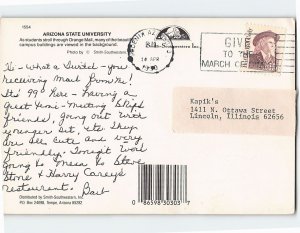 1554
ARIZONA STATE UNIVERSITY
As students stroll through Orange Mall, many of the beautiful
campus buildings are viewed in the background.
Photo by
Smith-Southwestern Inc.
18 APR
1990
GIVE
TO THE
MARCH OF
Hi - What a switch - you
receiving mail from me!
It's 99° here - having a
great time - meeting
friends, going out with
younger set, etc. They
are all cute and very
friendly. Tonight we're
going to Mesa to Steve
Stone & Harry Carey's
restaurant. Barb
Kapik's
1411 N. Ottawa Street
Lincoln, Illinois 62656
Distributed by Smith-Southwestern, Inc.
P.O. Box Tempe, Arizona 85282
0 86598 30303 7